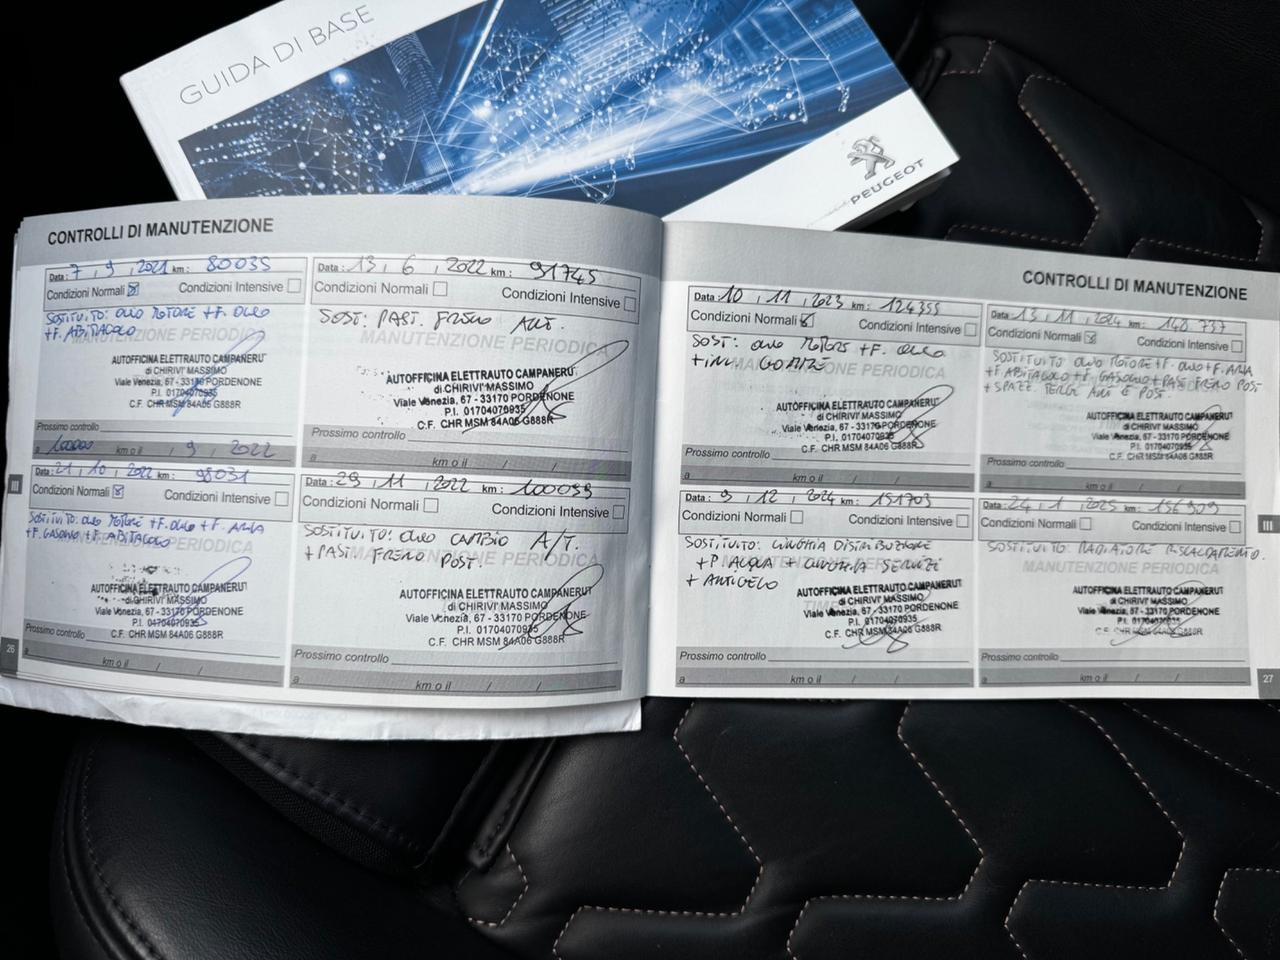 GUIDA DI BASE
PEUGEOT
CONTROLLI DI MANUTENZIONE
Data: 7, 9, 2021 km: 80035
Condizioni Normali Condizioni Intensive
MANUTENZIONE PERIODICA
SOSTITUITO: OLIO MOTORE + F. OLIO
+ F. ABITACOLO
AUTOFFICINA ELETTRAUTO CAMPANERUT
di CHIRIVI' MASSIMO
Viale Venezia, 67 - 33170 PORDENONE
P.I. 01704070935
C.F. CHR MSM 84A06 G888R
Prossimo controllo
a 100000 km o il / 9 / 2022
Data: 13, 6, 2022 km: 91745
Condizioni Normali Condizioni Intensive
SOST: PAST. FRENO ANT.
MANUTENZIONE PERIODICA
AUTOFFICINA ELETTRAUTO CAMPANERUT
di CHIRIVI' MASSIMO
Viale Venezia, 67 - 33170 PORDENONE
P.I. 01704070935
C.F. CHR MSM 84A06 G888R
Prossimo controllo
a km o il / /
Data: 21, 10, 2022 km: 98031
Condizioni Normali Condizioni Intensive
SOSTITUITO: OLIO MOTORE + F. OLIO + F. ARIA
+ F. GASOLIO + F. ABITACOLO
MANUTENZIONE PERIODICA
AUTOFFICINA ELETTRAUTO CAMPANERUT
di CHIRIVI' MASSIMO
Viale Venezia, 67 - 33170 PORDENONE
P.I. 01704070935
C.F. CHR MSM 84A06 G888R
Prossimo controllo
a km o il / /
Data: 29, 11, 2022 km: 100099
Condizioni Normali Condizioni Intensive
SOSTITUITO: OLIO CAMBIO A/T.
+ PAST FRENO POST.
MANUTENZIONE PERIODICA
AUTOFFICINA ELETTRAUTO CAMPANERUT
di CHIRIVI' MASSIMO
Viale Venezia, 67 - 33170 PORDENONE
P.I. 01704070935
C.F. CHR MSM 84A06 G888R
Prossimo controllo
a km o il / /
III
26
CONTROLLI DI MANUTENZIONE
Data: 10, 11, 2023 km: 124355
Condizioni Normali Condizioni Intensive
SOST: OLIO MOTORE + F. OLIO
+ INV. GOMME
MANUTENZIONE PERIODICA
AUTOFFICINA ELETTRAUTO CAMPANERUT
di CHIRIVI' MASSIMO
Viale Venezia, 67 - 33170 PORDENONE
P.I. 01704070935
C.F. CHR MSM 84A06 G888R
Prossimo controllo
a km o il / /
Data: 13, 11, 2024 km: 148.737
Condizioni Normali Condizioni Intensive
SOSTITUITO OLIO MOTORE + F. OLIO + F. ARIA
+ F. ABITACOLO + F. GASOLIO + PAST FRENO POST
+ SPAZZ. TERGI ANT E POST.
AUTOFFICINA ELETTRAUTO CAMPANERUT
di CHIRIVI' MASSIMO
Viale Venezia, 67 - 33170 PORDENONE
P.I. 01704070935
C.F. CHR MSM 84A06 G888R
Prossimo controllo
a km o il / /
Data: 9, 12, 2024 km: 151703
Condizioni Normali Condizioni Intensive
SOSTITUITO: CINGHIA DISTRIBUZIONE
+ P ACQUA + CINGHIA SERVIZI
+ ANTIGELO
AUTOFFICINA ELETTRAUTO CAMPANERUT
di CHIRIVI' MASSIMO
Viale Venezia, 67 - 33170 PORDENONE
P.I. 01704070935
C.F. CHR MSM 84A06 G888R
Prossimo controllo
a km o il / /
Data: 24, 1, 2025 km: 156909
Condizioni Normali Condizioni Intensive
SOSTITUITO RADIATORE RISCALDAMENTO.
MANUTENZIONE PERIODICA
AUTOFFICINA ELETTRAUTO CAMPANERUT
di CHIRIVI' MASSIMO
Viale Venezia, 67 - 33170 PORDENONE
P.I. 01704070935
C.F. CHR MSM 84A06 G888R
Prossimo controllo
a km o il / /
III
27